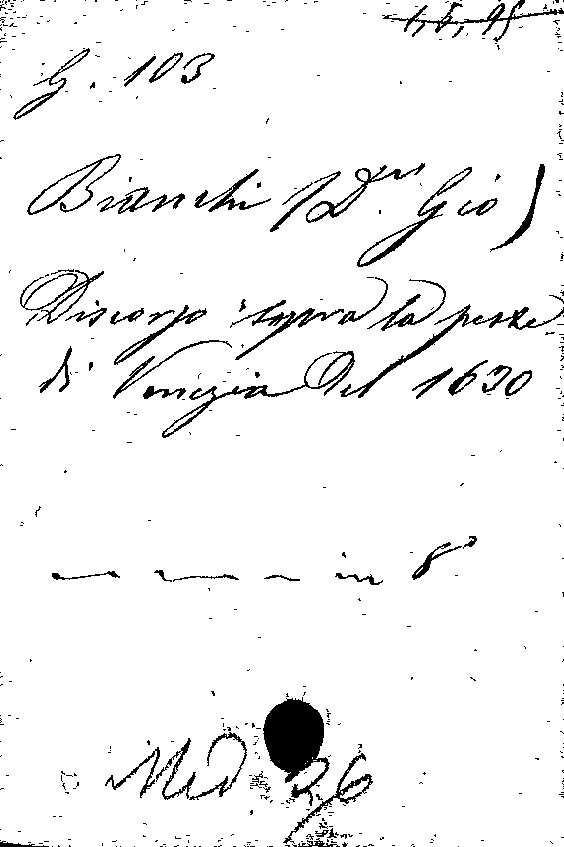 G. 103
Bianchi (D.re Gio)
Discorso sopra la peste
di Venezia del 1630
in 8º
Med. 26